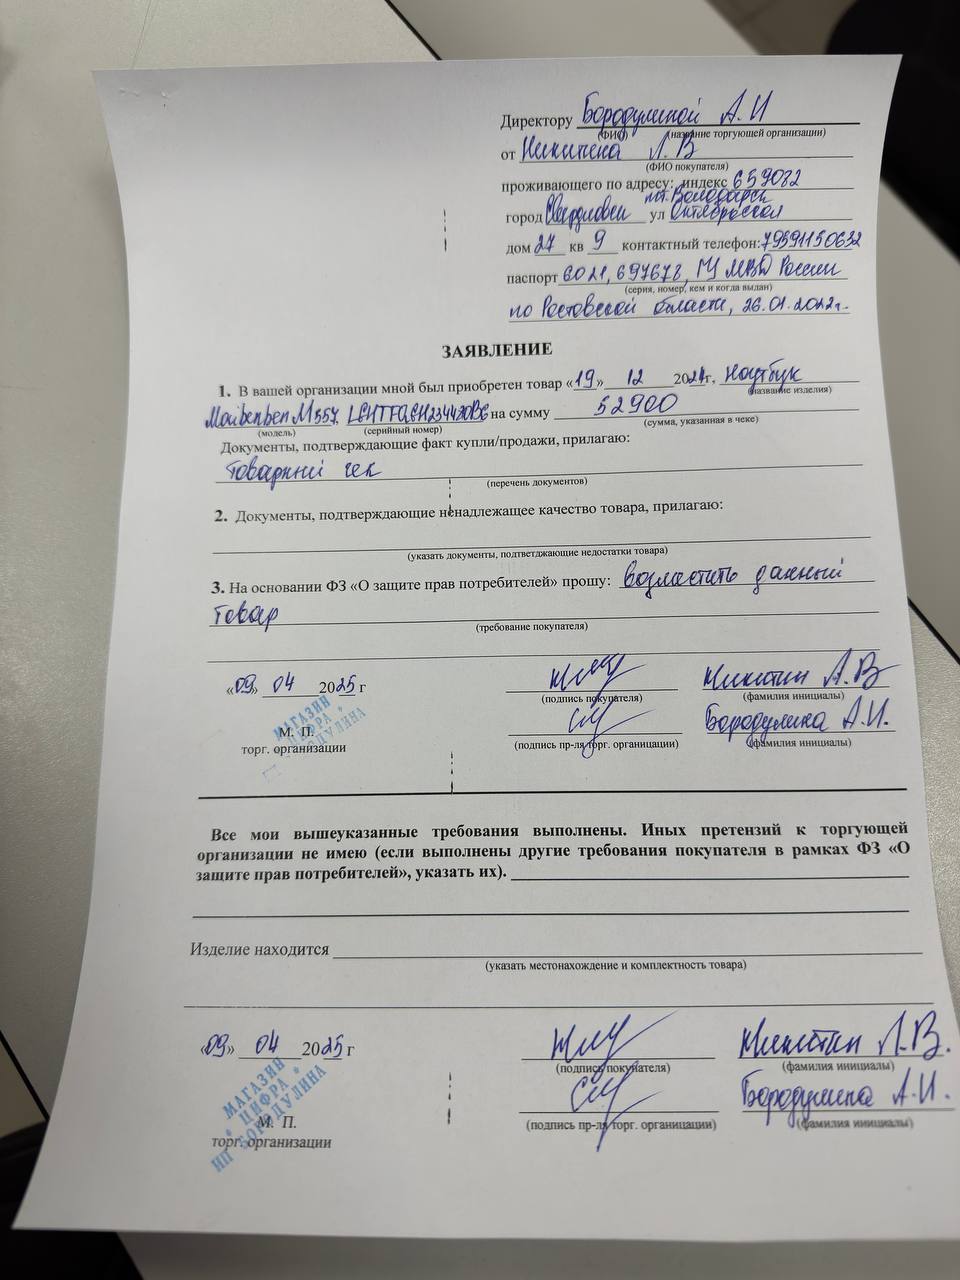 Директору Бородулиной А.И
(ФИО) (название торгующей организации)
от Никитена Л.В
(ФИО покупателя)
проживающего по адресу: индекс 659082
пгт. Володарск
город Свердловск ул Октябрьская
дом 27 кв 9 контактный телефон: 79591150632
паспорт 6021, 697678, ГУ МВД России
(серия, номер, кем и когда выдан)
по Ростовской области, 26.01.2022г.
ЗАЯВЛЕНИЕ
1. В вашей организации мной был приобретен товар «19» 12 2024г, Ноутбук
(название изделия)
MaibenbenM557, на сумму 52900
(модель) (серийный номер) (сумма, указанная в чеке)
Документы, подтверждающие факт купли/продажи, прилагаю:
Товарный чек
(перечень документов)
2. Документы, подтверждающие ненадлежащее качество товара, прилагаю:
(указать документы, подтветджающие недостатки товара)
3. На основании ФЗ «О защите прав потребителей» прошу: возместить данный
товар
(требование покупателя)
«09» 04 2025 г Никитин Л.В
(подпись покупателя) (фамилия инициалы)
МАГАЗИН
* ЦИФРА *
БОРОДУЛИНА
Бородулина А.И.
М. П.
торг. организации (подпись пр-ля торг. органицации) (фамилия инициалы)
Все мои вышеуказанные требования выполнены. Иных претензий к торгующей
организации не имею (если выполнены другие требования покупателя в рамках ФЗ «О
защите прав потребителей», указать их).
Изделие находится
(указать местонахождение и комплектность товара)
«09» 04 2025 г Никитин Л.В.
(подпись покупателя) (фамилия инициалы)
МАГАЗИН
* ЦИФРА *
ИП БОРОДУЛИНА
Бородулина А.И.
М. П.
торг. организации (подпись пр-ля торг. органицации) (фамилия инициалы)